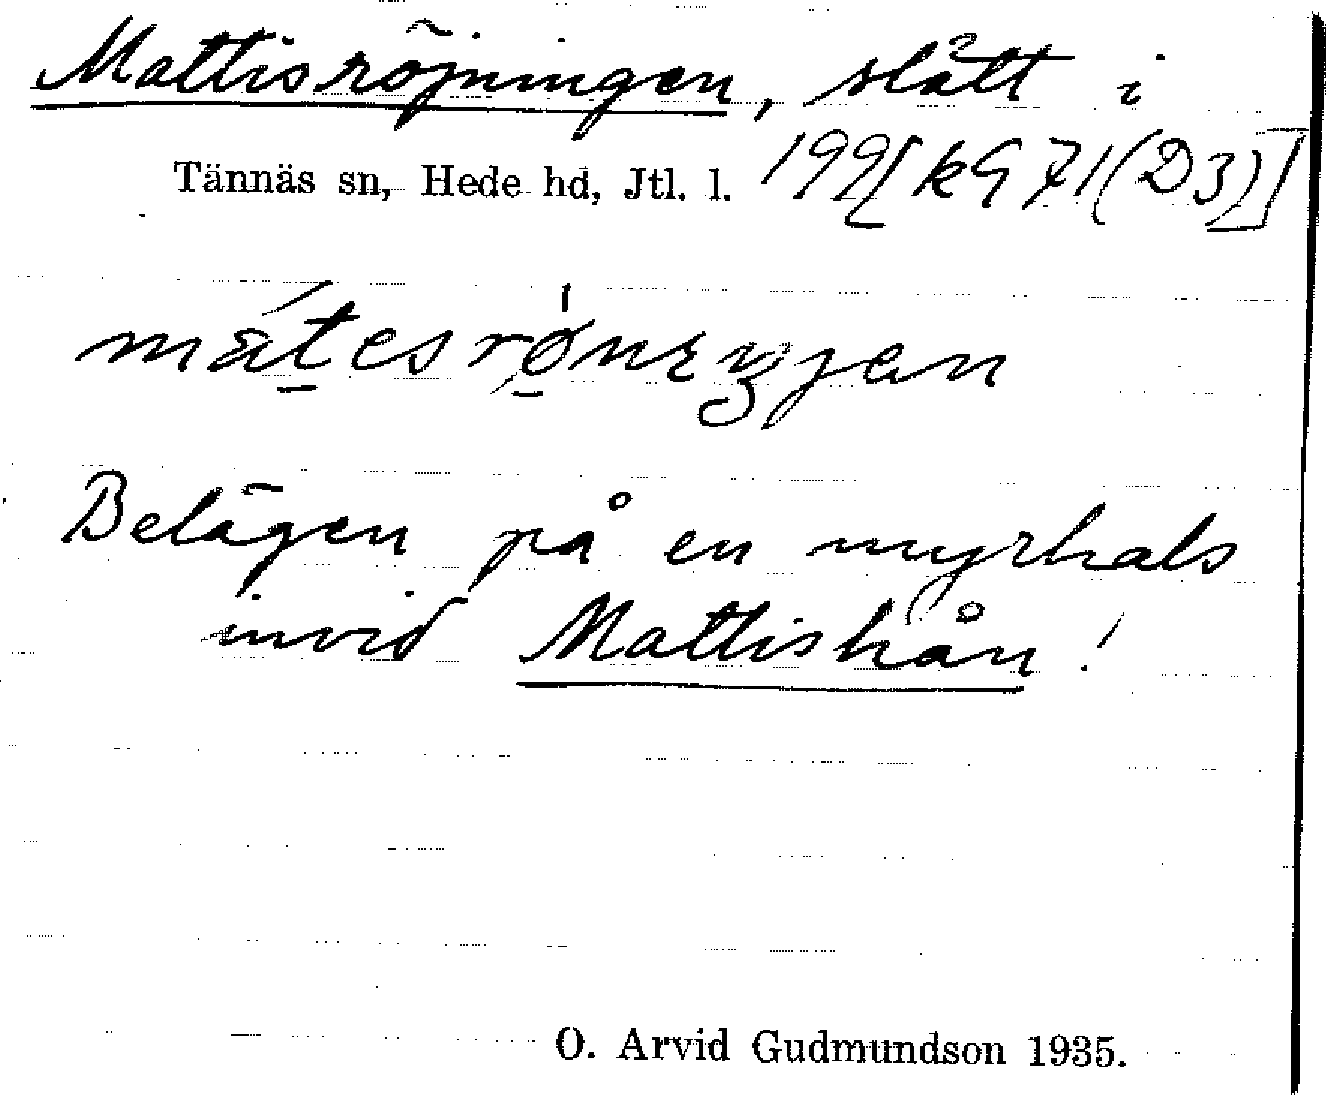 Mattisröjningen, slått i
Tännäs sn, Hede hd, Jtl. l. 199[kG71(D3)]
Belägen på en myrhals
invid Mattishån!
O. Arvid Gudmundson 1935.